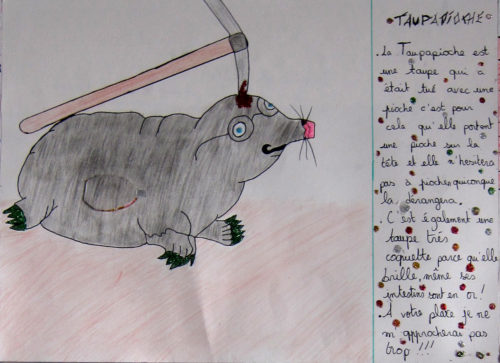 TAUPAPIOCHE
. La Taupapioche est
une taupe qui a
était tué avec une
pioche c'est pour
cela qu'elle portent
une pioche sur la
tête et elle n'hesitera
pas à piocher quiconque
la derangera.
. C'est également une
taupe trés
coquette parce qu'elle
brille, même ses
intestins sont en or!
A votre place je ne
m'approcherai pas
trop !!!